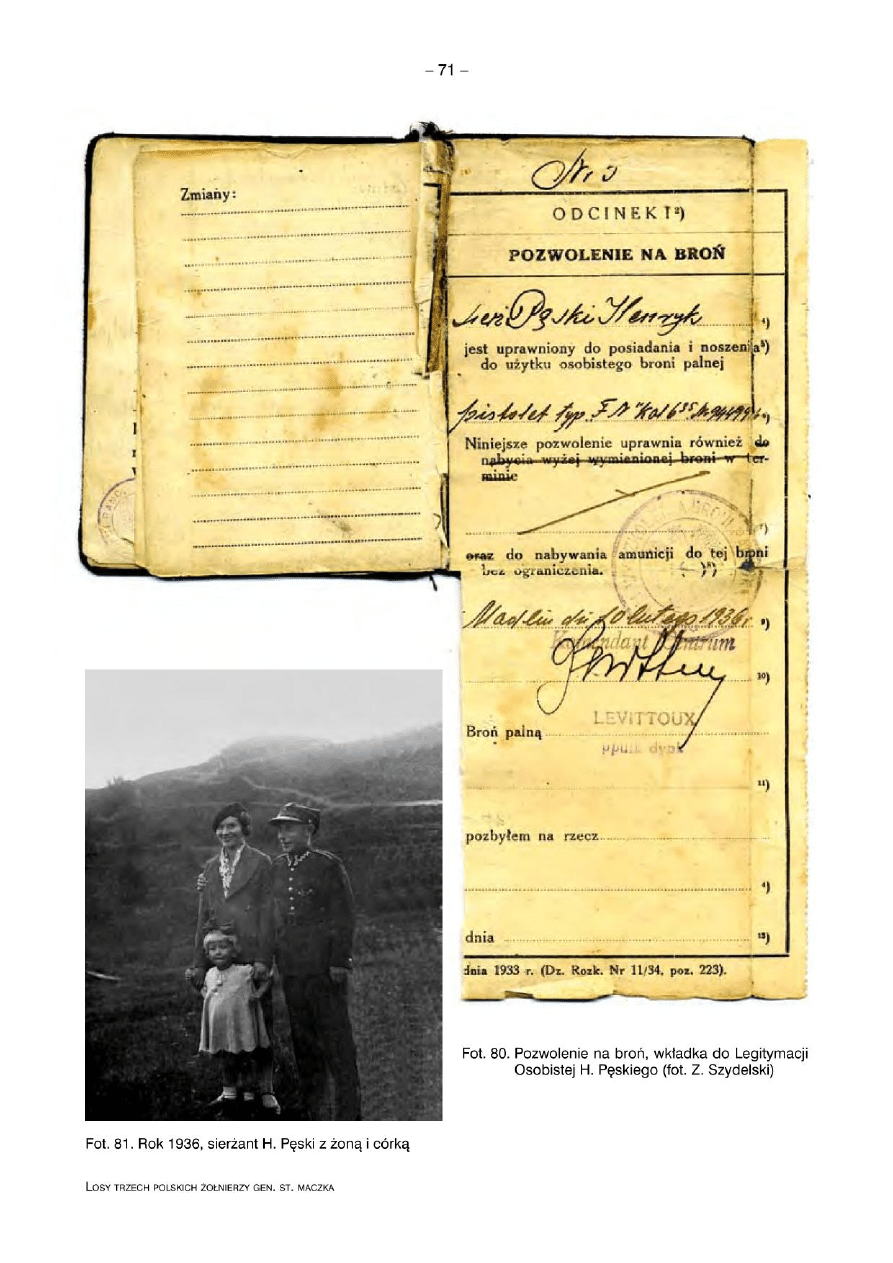 – 71 –
Zmiany:
Nr 3
ODCINEK I ²)
POZWOLENIE NA BROŃ
sierż. Pęski Henryk ⁴)
jest uprawniony do posiadania i noszenia⁵)
do użytku osobistego broni palnej
pistolet typ „FN" Kal 6³⁵
Niniejsze pozwolenie uprawnia również do
nabycia wyżej wymienionej broni w ter-
minie
⁷)
oraz do nabywania amunicji do tej broni
bez ograniczenia. ⁸)
Modlin dn 10 lutego 1936 r. ⁹)
Komendant Centrum
¹⁰)
LEVITTOUX
Broń palną
ppułk dypl
¹¹)
pozbyłem na rzecz
⁴)
dnia ¹²)
dnia 1933 r. (Dz. Rozk. Nr 11/34, poz. 223).
Fot. 80. Pozwolenie na broń, wkładka do Legitymacji
Osobistej H. Pęskiego (fot. Z. Szydelski)
Fot. 81. Rok 1936, sierżant H. Pęski z żoną i córką
LOSY TRZECH POLSKICH ŻOŁNIERZY GEN. ST. MACZKA